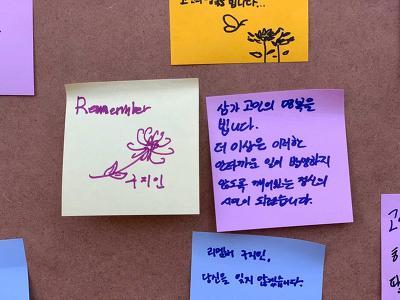 빕니다...
Remember
구지인
삼가 고인의 명복을
빕니다.
더 이상은 이러한
안타까운 일이 발생하지
않도록 깨어있는 정신의
시민이 되겠습니다.
리멤버 구지인,
당신을 잊지 않겠습니다.